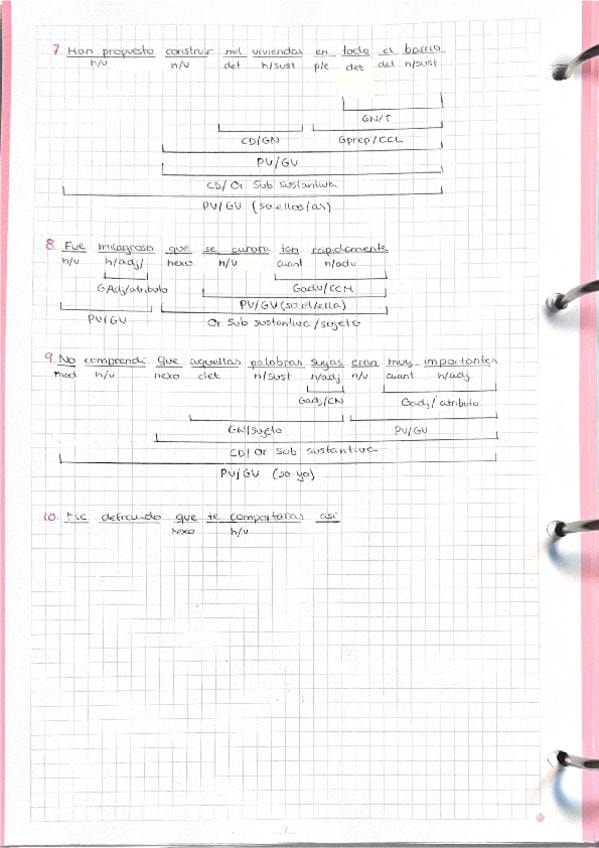 7. Han propuesto construir mil viviendas en todo el barrio
n/v n/v det n/sust p/e det det n/sust
GN/T
CD/GN Gprep/CCL
PV/GV
CD/ Or Sub sustantiva
PV/GV (so ellos/as)
8 Fue milagroso que se curara tan rapidamente
n/v n/adj/ nexo n/v cuant n/adv
GAdj/atributo Gadv/CCM
PV/GV (so el/ella)
PV/GV Or Sub sustantiva/sujeto
9. No comprendi que aquellas palabras suyas eran muy importantes
mod n/v nexo det n/sust n/adj n/v cuant n/adj
Gadj/CN Gadj/atributo
GN/sujeto PV/GV
CD/ Or Sub sustantiva
PV/GV (so yo)
10. Me defraudo que te comportaras asi
nexo n/v